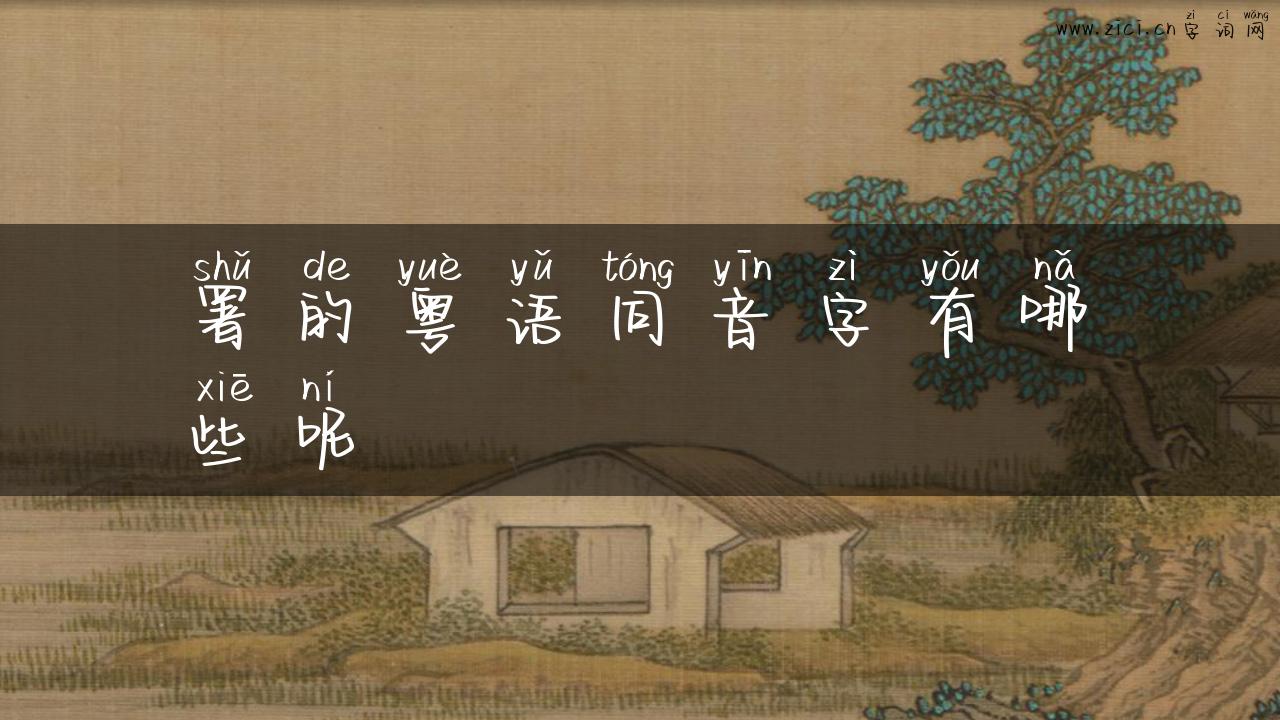 zì cí wǎng
www.zici.cn 字词网
shǔ de yuè yǔ tóng yīn zì yǒu nǎ
署的粤语同音字有哪
xiē ní
些呢